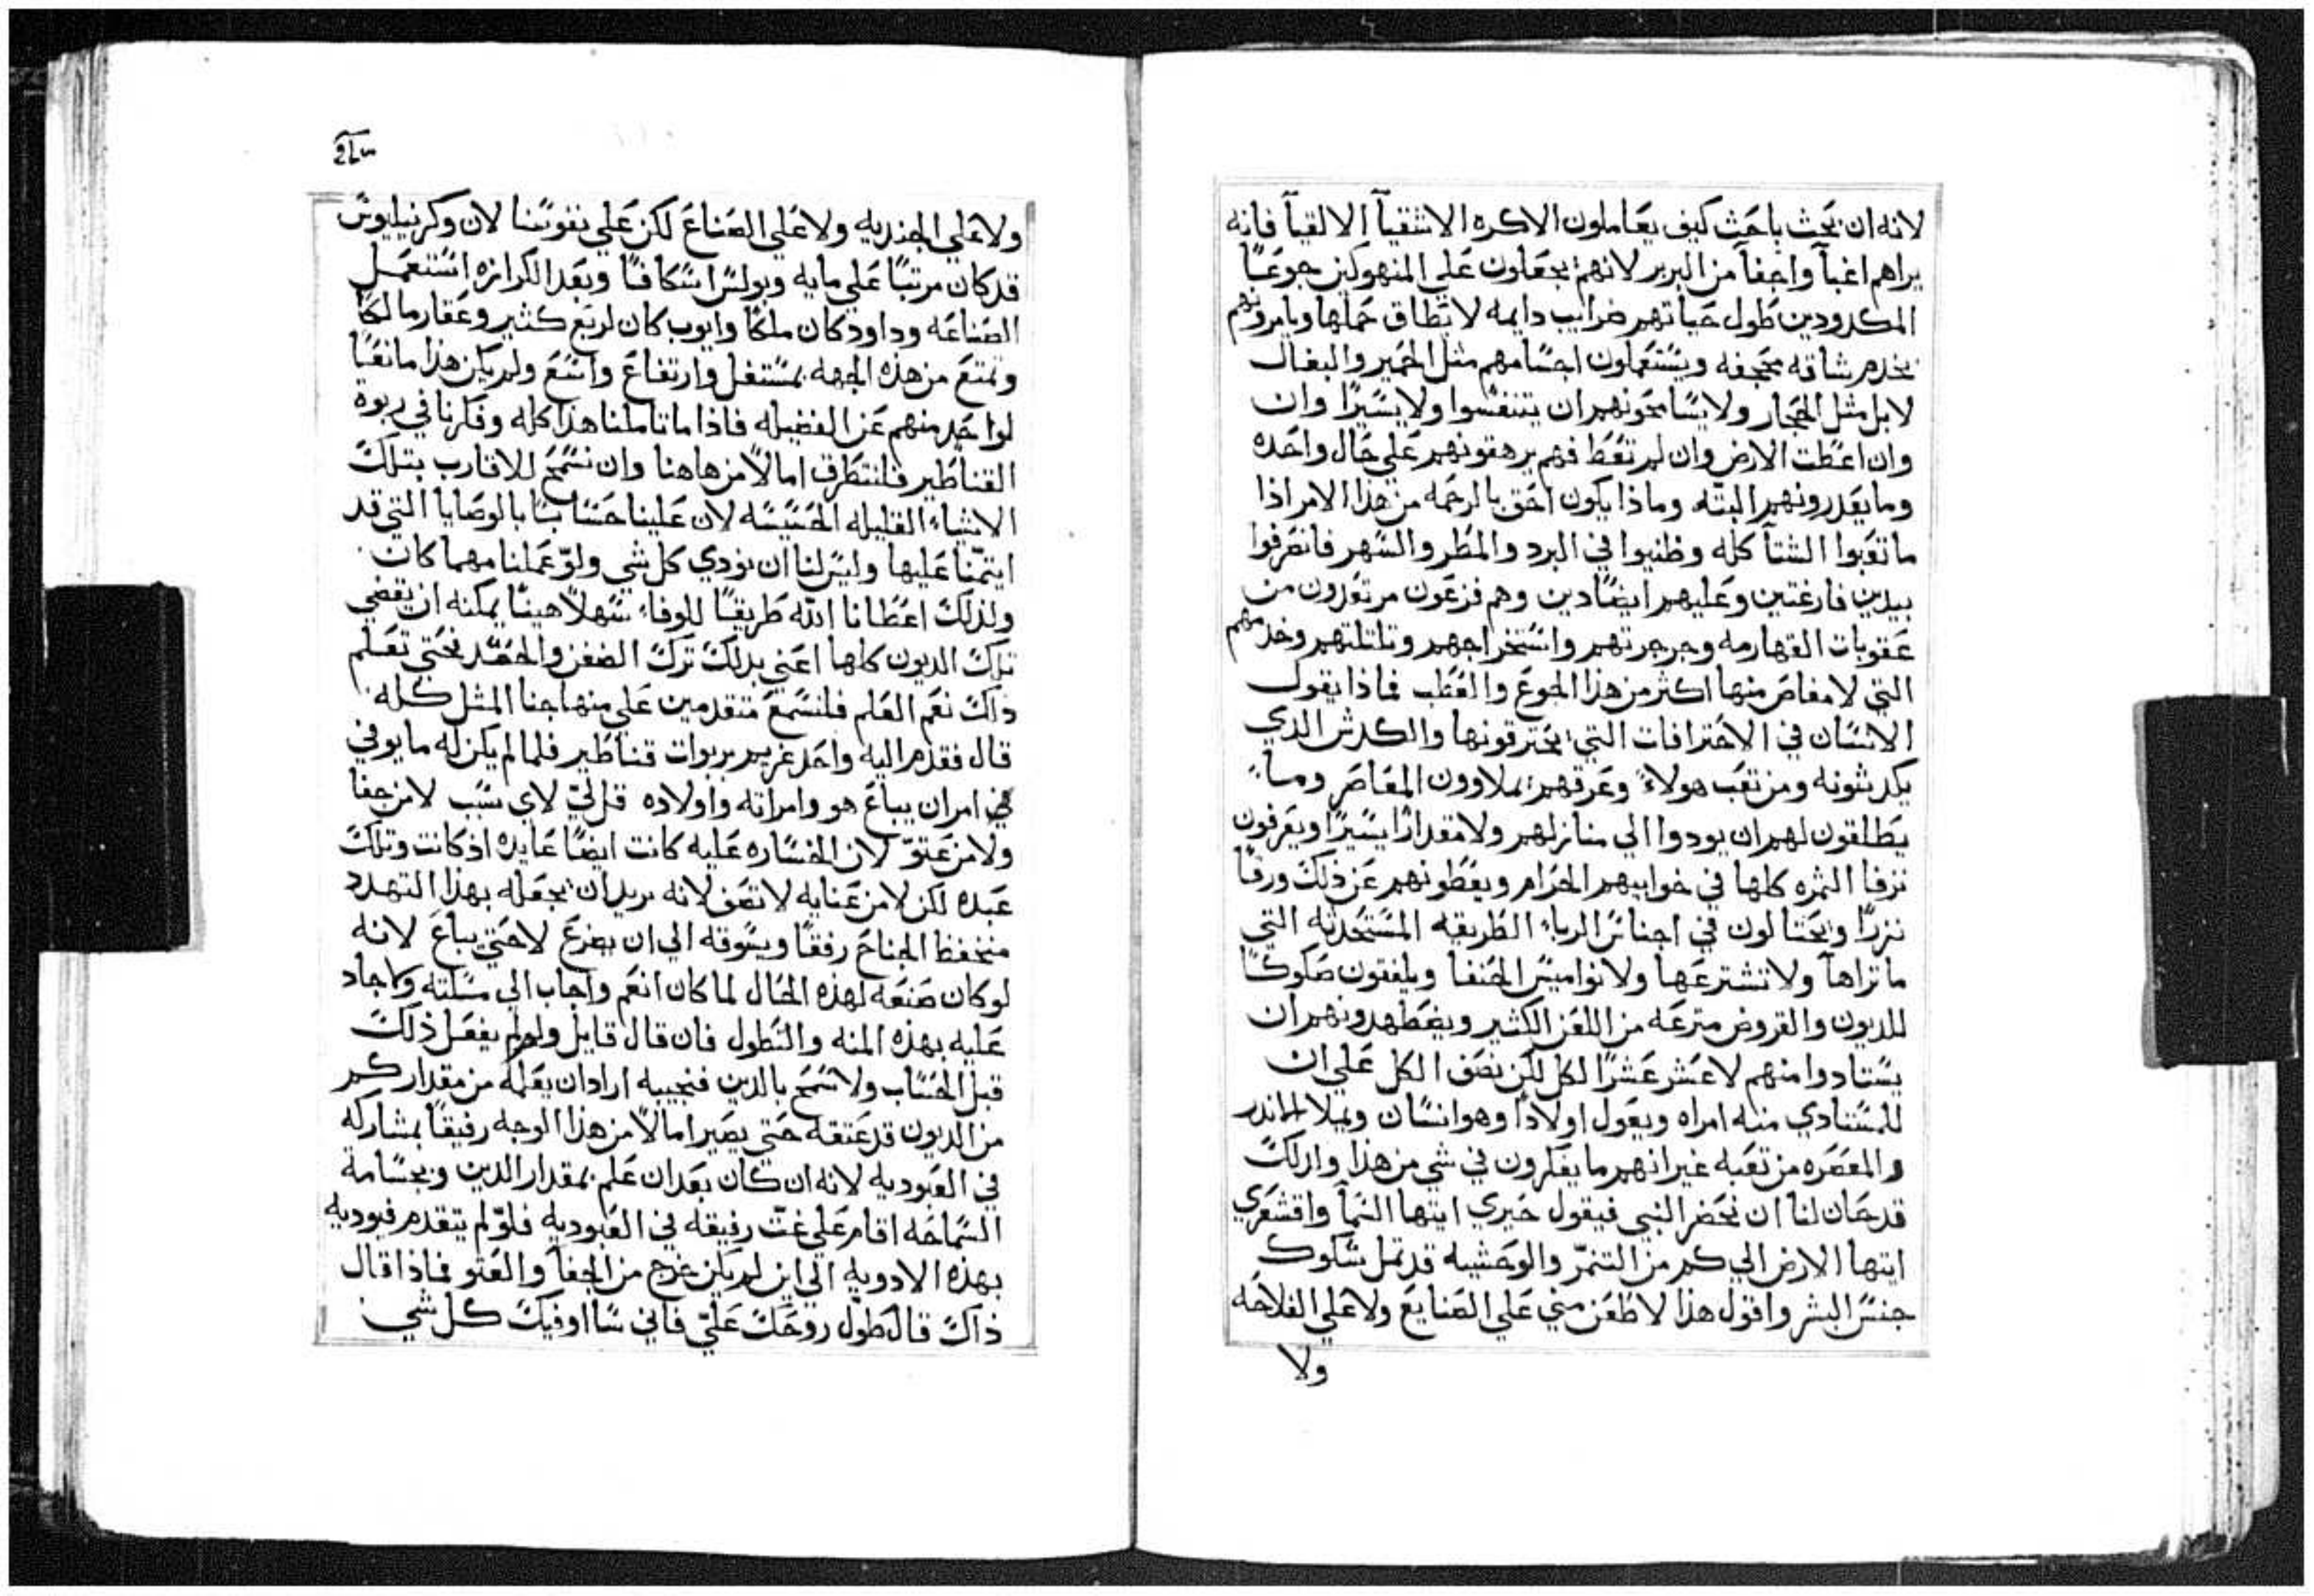 لانه ان بحث باحث كيف يعاملون الاكره الاشقيآ الالقيآ فانه
يراهم اغبآ واجفآ من البربر لانهم يجعلون علي المنهوكين جوعًا
المكدودين طول حياتهم ضرايب دايمه لا تطاق حملها ويامرونهم
بخدم شاقه مجحفه ويستعملون اجسامهم مثل الحمير والبغال
لا بل مثل الحجار ولا يسامحونهم ان يتنفسوا ولا يسيرًا وان
وان اعطت الارض وان لم تعط فهم يرهقونهم علي حال واحده
وما يعذرونهم البته وماذا يكون احق بالرحمه من هذا الامر اذا
ما تعبوا الشتآ كله وظنيوا في البرد والمطر والسهر فانصرفوا
بيدين فارغتين وعليهم ايضًا دين وهم فزعون مرتعدون من
عقوبات القهارمه وجرجرتهم واستخراجهم وتلتلتهم وخدمهم
التي لا مفاص منها اكثر من هذا الجوع والعطب فماذا يقول
الانسان في الاحترافات التي يحترفونها والكدش الذي
يكدشونه ومن تعب هولاء وعرقهم يملاوون المعاصر وما
يطلقون لهم ان يودوا الي منازلهم ولا مقدارًا يسيرًا ويغرفون
نزفا الثمره كلها في خوابيهم الحرام ويعطونهم عن ذلك ورقًا
نزرًا ويحتالون في اجناس الرباء الطريقه المستحدثه التي
ما تراها ولا تشترعها ولا نواميس الحنفا ويلفتون صكوكًا
للديون والقروض مترعه من اللعن الكثير ويضطهدونهم ان
يستادوا منهم لا عشر عشرًا لكل لكن نصف الكل علي ان
للمستادي منه امراه ويعول اولادًا وهو انسان ويملا الاندر
والمعصره من تعبه غير انهم ما يفكرون في شي من هذا ولذلك
قد حان لنا ان نحضر النبي فيقول حيري ايتها السمآ واقشعري
ايتها الارض الي كم من التنمّر والوحشيه قد تمل سكوك
جنس البشر واقول هذا لا طعن مني علي الصنايع ولا علي الفلاحه
ولا
ولا علي الجنديه ولا علي الصناع لكن علي نفوسنا لان وكرنيليوس
قد كان مرتبًا علي مايه وبولس اسكافًا وبعد الكرازه استعمل
الصناعه وداود كان ملكًا وايوب كان لربع كثير وعقار مالكًا
وتمتع من هذه الجهه بمستغل وارتفاع واسع ولم يكن هذا مانعًا
لواحد منهم عن الفضيله فاذا ما تاملنا هذا كله وفكرنا في ربوة
القناطير فلنتطرق امالًا من هاهنا وان نسمح للاقارب بتلك
الاشياء القليله الخسيسه لان علينا حسابًا بالوصايا التي قد
ايتمنّا عليها وليس لنا ان نودي كل شي ولوّ عملنا مهما كان
ولذلك اعطانا الله طريقًا للوفاء سهلًا هينًا يمكنه ان يقضي
تلك الديون كلها اعني بذلك ترك الضغن والحقد فحتي تعلم
ذلك نعم العلم فلنسمع متقدمين علي منهاجنا المثل كله
قال فقدم اليه واحد غريم بربوات قناطير فلما لم يكن له ما يوفي
امر ان يباع هو وامراته واولاده قل لي لاي سبب لا من جفا
ولا من عتوّ لان الخساره عليه كانت ايضًا عايده اذ كانت وتلك
عبده لكن لا من عنايه لا تصف لانه يريد ان يجعله بهذا التهدد
منخفظ الجناح رفقًا ويسوقه الي ان يضرع لا حتي يباع لانه
لو كان صنعه لهذه الحال لما كان انعم واجاب الي مسلته ولا جاد
عليه بهذه المنه والتطول فان قال قايل ولم لم يفعل ذلك
قبل الحساب ولا سمح بالدين فنجيبه اراد ان يعلمه من مقدار كم
من الديون قد عتقه حتي يصير امالًا من هذا الوجه رفيقًا بمشاركه
في العبوديه لانه ان كان بعد ان علم بمقدار الدين وبجسامة
السماحه اقام علي غتّ رفيقه في العبوديه فلوّ لم يتقدم فيوديه
بهذه الادويه الي اين لم يكن خرج من الجفآ والعتو فماذا قال
ذاك قال طوّل روحك عليّ فاني سااوفيك كل شي